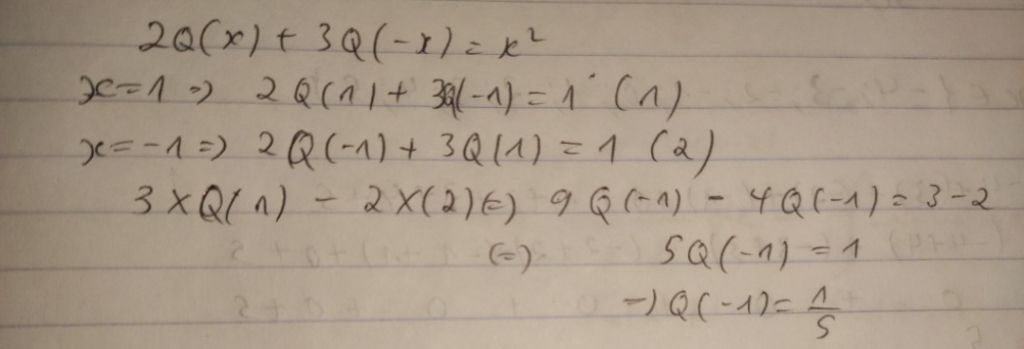 2Q(x) + 3Q(-x) = x²
x=1 => 2Q(1) + 3Q(-1) = 1 (1)
x=-1 => 2Q(-1) + 3Q(1) = 1 (2)
3 x Q(1) - 2 x (2) <=> 9Q(-1) - 4Q(-1) = 3-2
<=> 5Q(-1) = 1
-> Q(-1) = 1/5